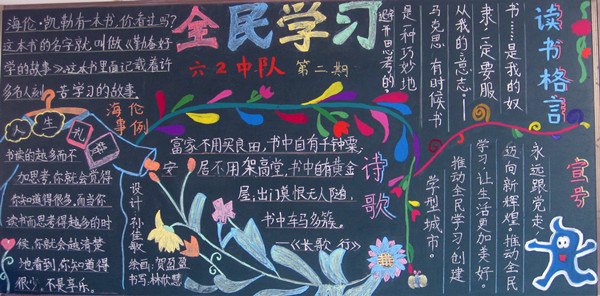 海伦·凯勒有一本书,你看过吗?
这本书的名字就叫做《勤奋好
学的故事》。这本书里面记载着许
多名人刻苦学习的故事.
全民学习
六2中队 第二期
海伦
事例
人生
书读的越多而不
加思考,你就会觉得
你知道得很多,而当你
读书而思考得越多的时
候,你就会越清楚
地看到,你知道得
很少,不是享乐。
设计:孙佳歌
绘画:贺盈盈
书写:林欣慧
富家不用买良田,书中自有千钟粟,
安居不用架高堂,书中自有黄金
屋,出门莫恨无人随,
书中车马多簇。
——《长歌行》
诗歌
读书格言
书……是我的奴
隶,一定要服
从我的意志。
马克思
有时候书
是一种巧妙地
避开思考的
宣号
永远跟党走,
迈向新辉煌。推动全民
学习,让生活更加美好。
推动全民学习,创建
学型城市。